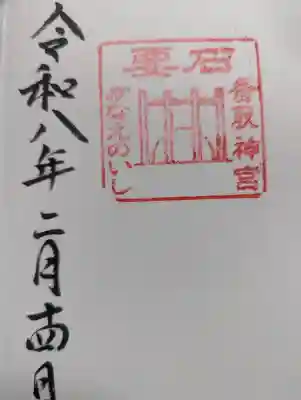 令和八年二月十四日
要石
香取神宮
かなめのいし